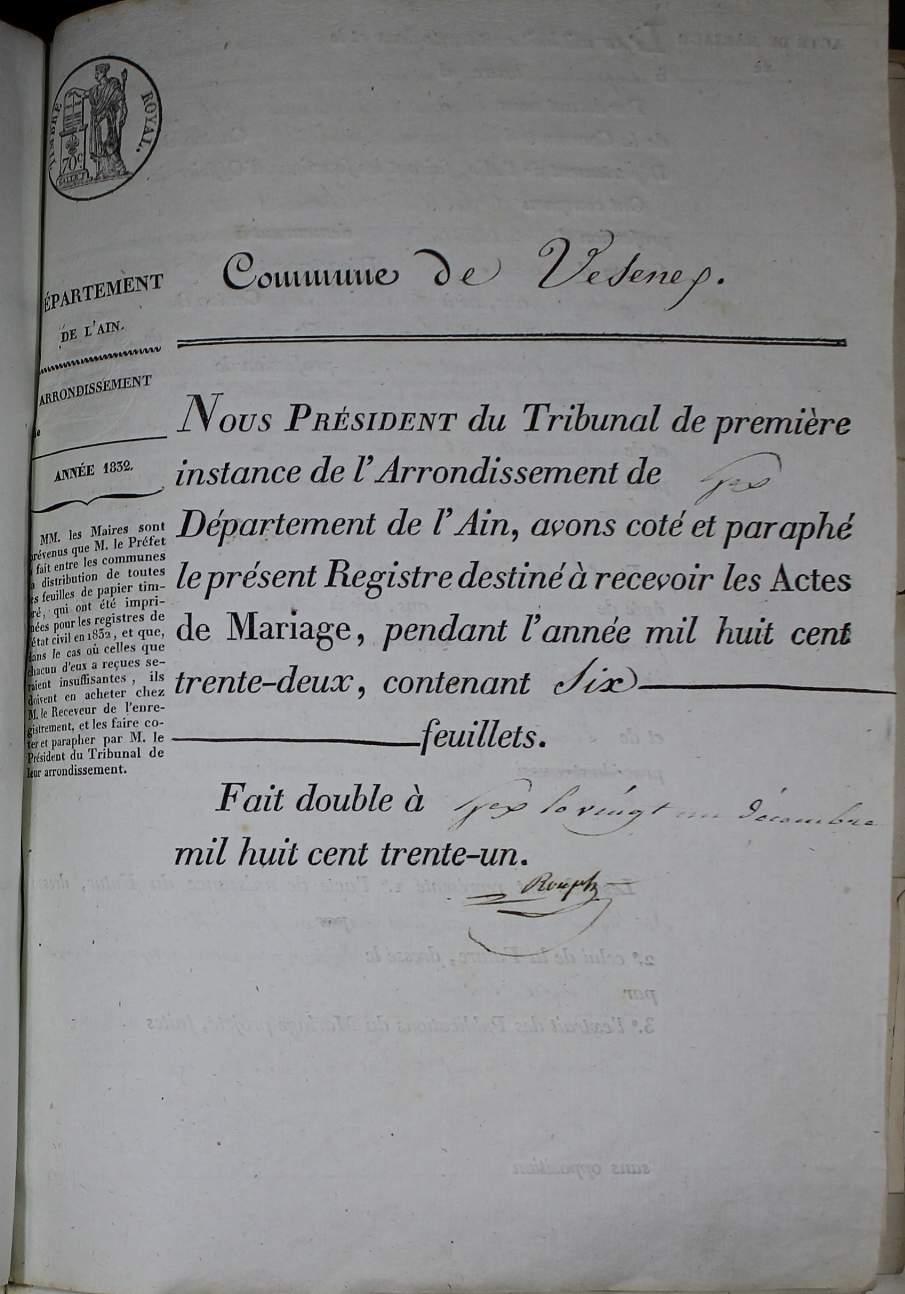 TIMBRE ROYAL.
70 c
Commune de Vesenex.
DÉPARTEMENT
DE L'AIN.
ARRONDISSEMENT
ANNÉE 1832.
MM. les Maires sont
prévenus que M. le Préfet
a fait entre les communes
la distribution de toutes
les feuilles de papier tim-
bré, qui ont été impri-
mées pour les registres de
l'état civil en 1832, et que,
dans le cas où celles que
chacun d'eux a reçues se-
raient insuffisantes, ils
doivent en acheter chez
M. le Receveur de l'enre-
gistrement, et les faire co-
ter et parapher par M. le
Président du Tribunal de
leur arrondissement.
NOUS PRÉSIDENT du Tribunal de première
instance de l'Arrondissement de Gex
Département de l'Ain, avons coté et paraphé
le présent Registre destiné à recevoir les Actes
de Mariage, pendant l'année mil huit cent
trente-deux, contenant six
feuillets.
Fait double à Gex le vingt un décembre
mil huit cent trente-un.